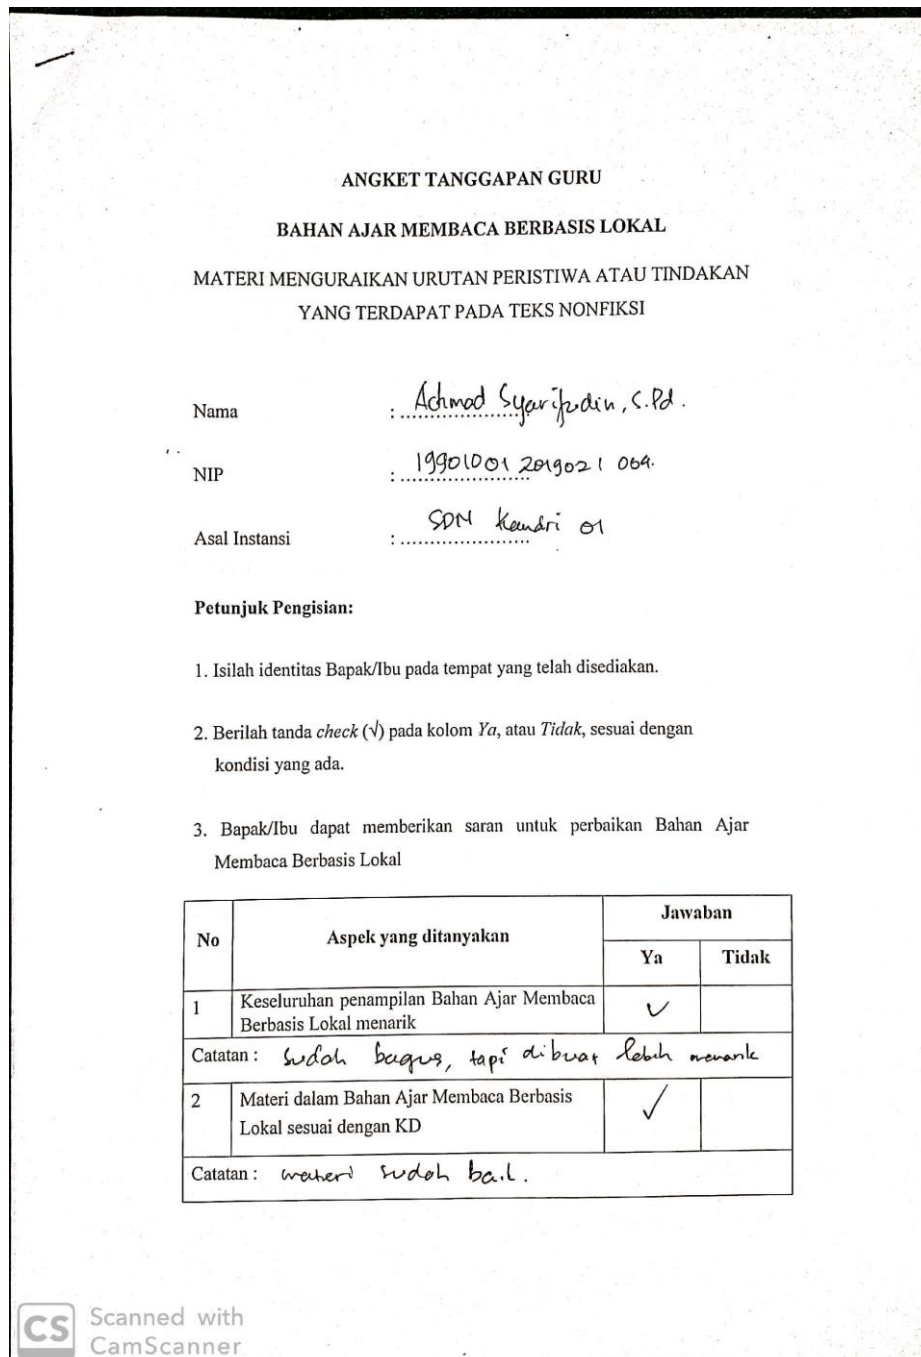 ANGKET TANGGAPAN GURU
BAHAN AJAR MEMBACA BERBASIS LOKAL
MATERI MENGURAIKAN URUTAN PERISTIWA ATAU TINDAKAN
YANG TERDAPAT PADA TEKS NONFIKSI
Nama : Achmad Syarifudin, S.Pd.
NIP : 19901001 201902 1 004.
Asal Instansi : SDN Kandri 01
Petunjuk Pengisian:
1. Isilah identitas Bapak/Ibu pada tempat yang telah disediakan.
2. Berilah tanda check (√) pada kolom Ya, atau Tidak, sesuai dengan
kondisi yang ada.
3. Bapak/Ibu dapat memberikan saran untuk perbaikan Bahan Ajar
Membaca Berbasis Lokal
No Aspek yang ditanyakan Jawaban
Ya Tidak
1 Keseluruhan penampilan Bahan Ajar Membaca ✓
Berbasis Lokal menarik
Catatan : Sudah bagus, tapi dibuat lebih menarik
2 Materi dalam Bahan Ajar Membaca Berbasis ✓
Lokal sesuai dengan KD
Catatan : materi sudah baik.
CS Scanned with
CamScanner